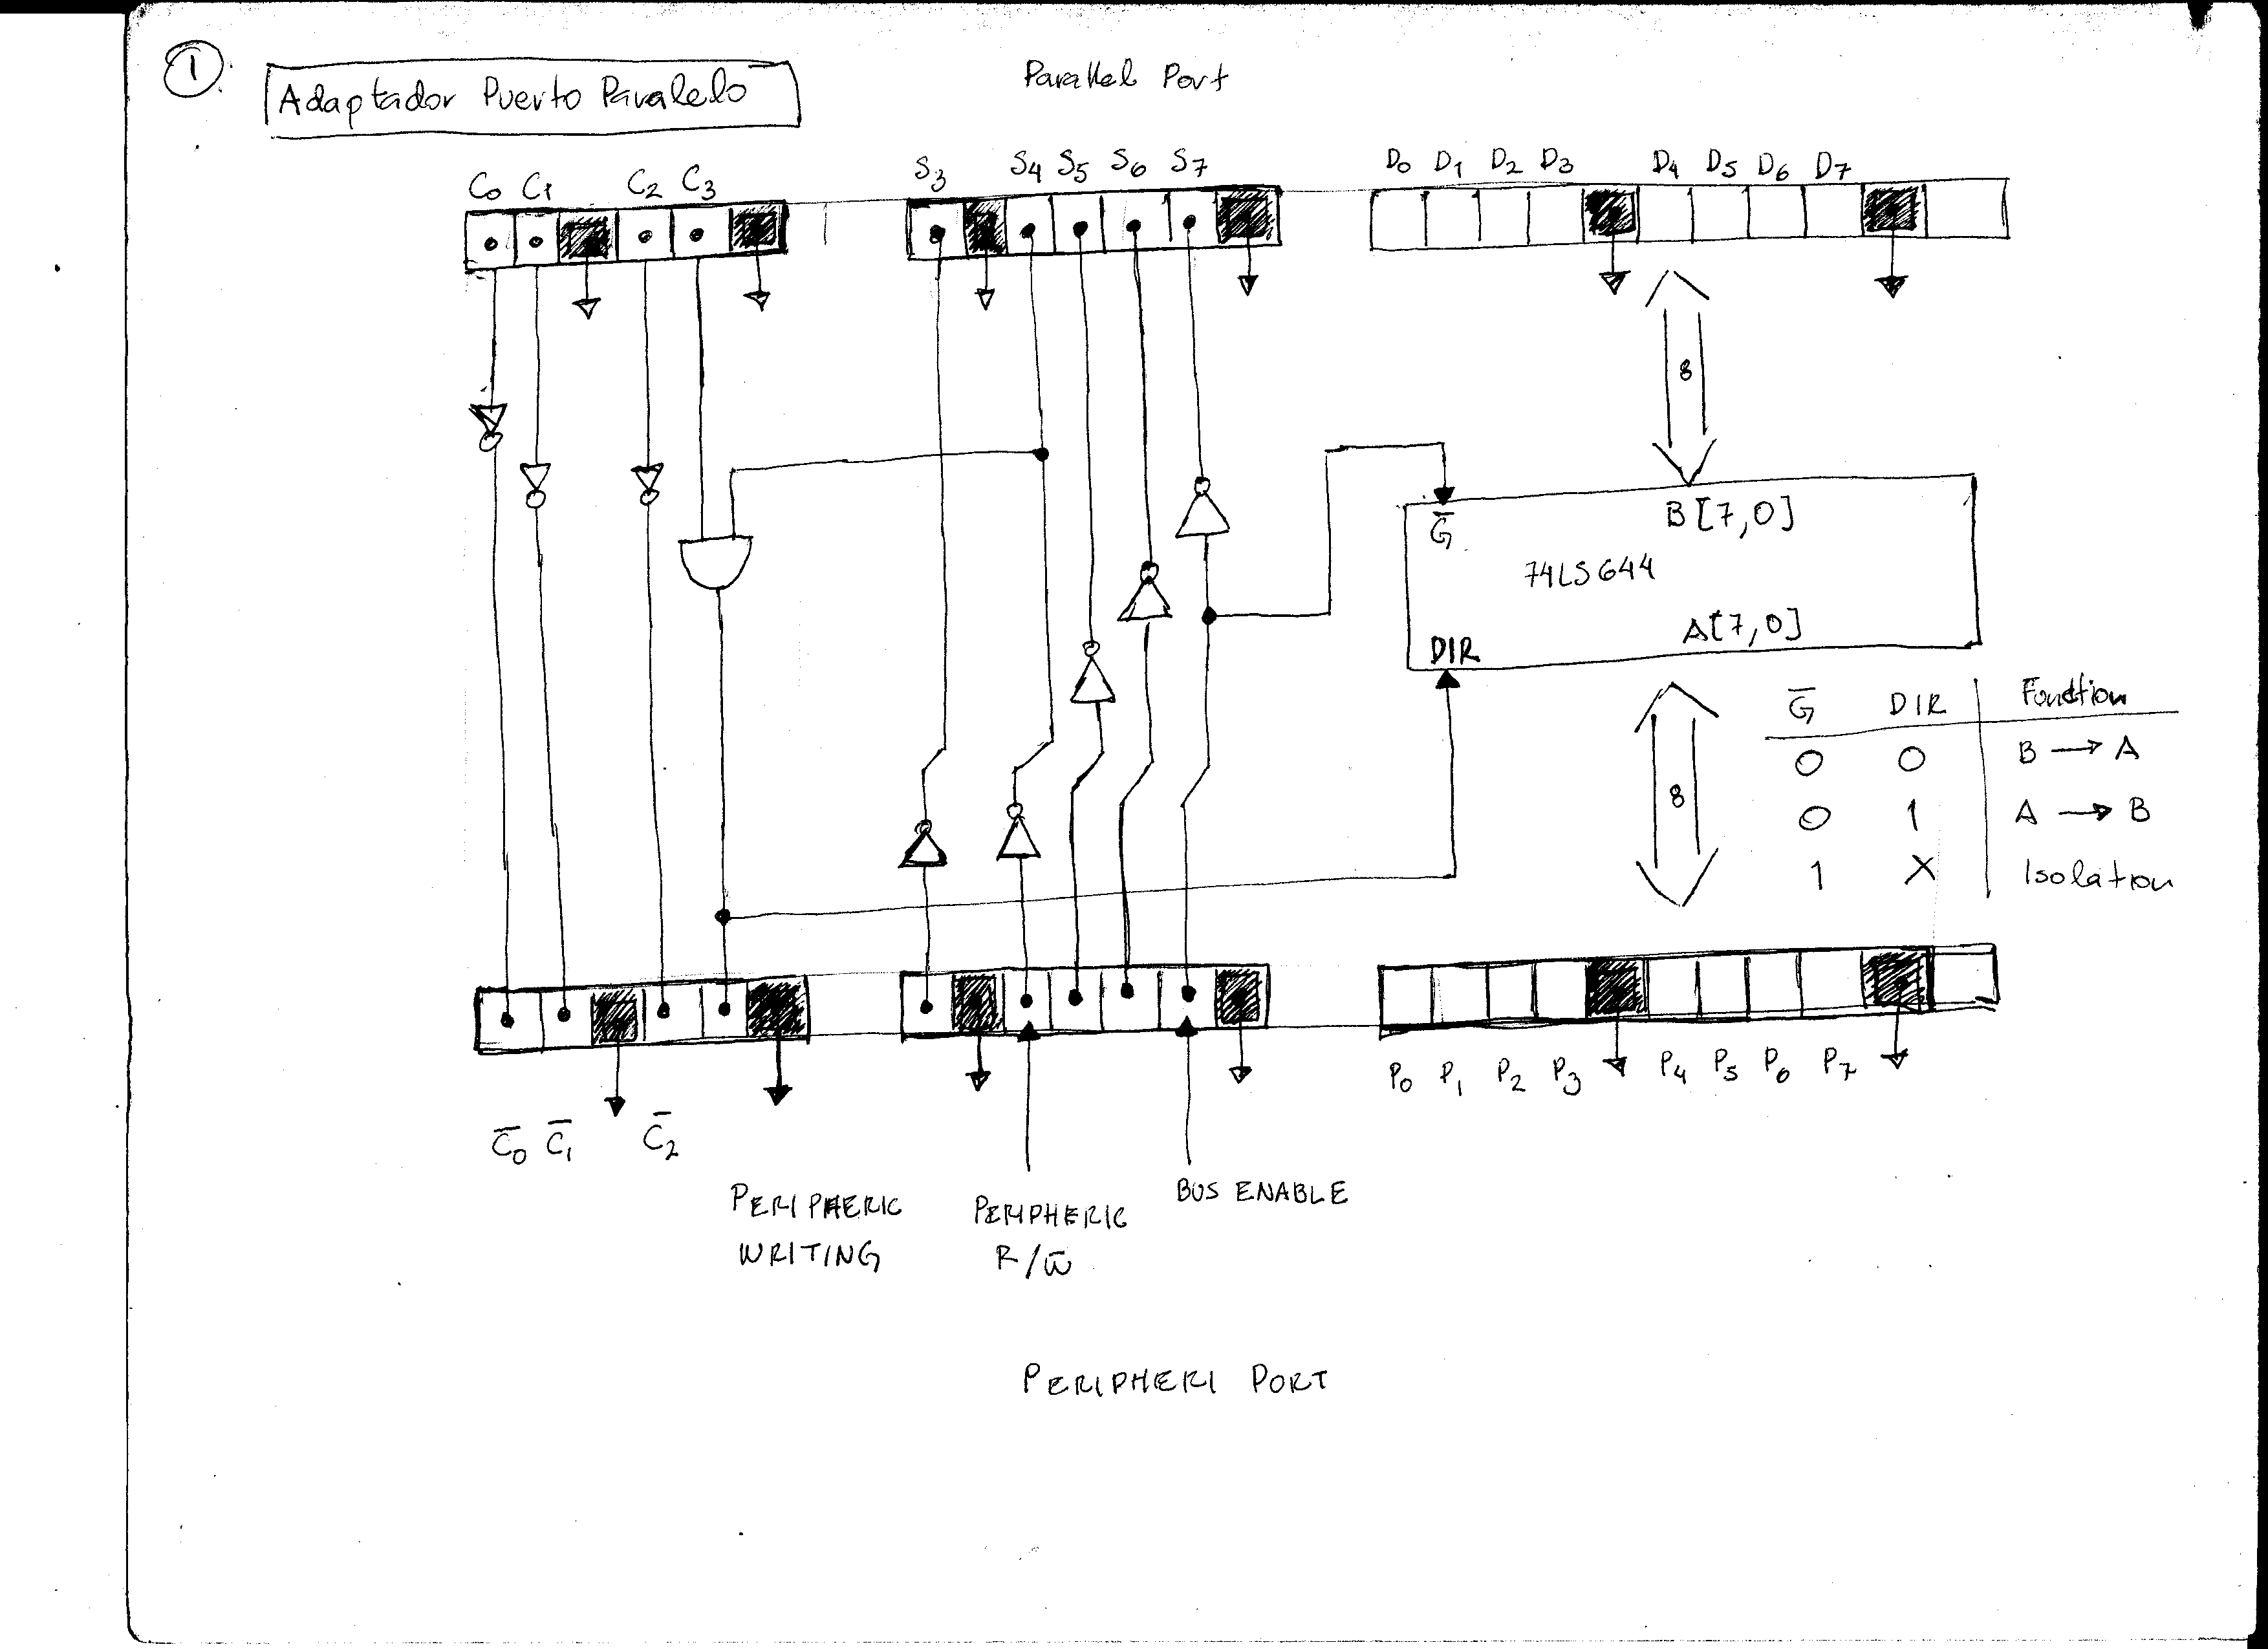 1
Adaptador Puerto Paralelo
Parallel Port
C0 C1 C2 C3
S3 S4 S5 S6 S7
D0 D1 D2 D3 D4 D5 D6 D7
8
G̅
B[7,0]
74LS644
A[7,0]
DIR
8
G̅ DIR Fondtion
0 0 B → A
0 1 A → B
1 X Isolation
P0 P1 P2 P3 P4 P5 P6 P7
C̅0 C̅1 C̅2
PERIPHERIC
WRITING
PERIPHERIC
R/W̅
BUS ENABLE
PERIPHERI PORT